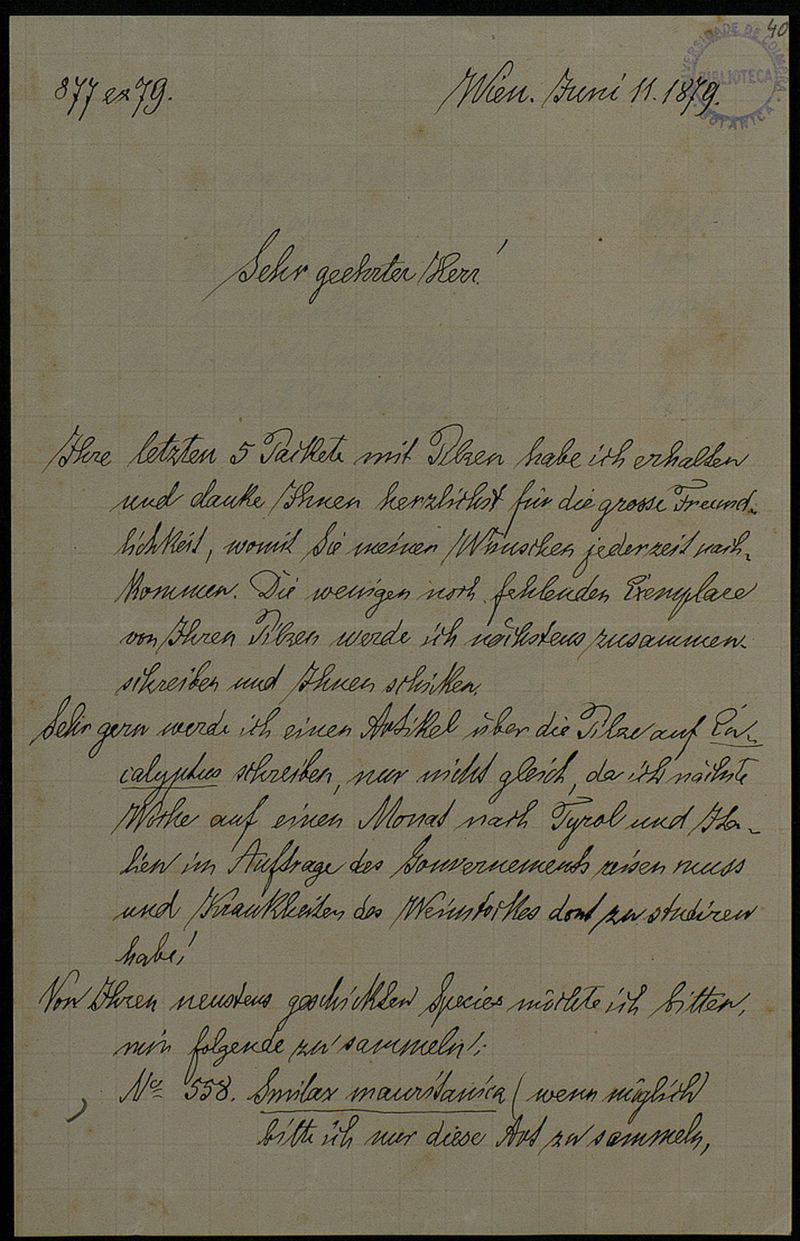 40
UNIVERSIDADE DE COIMBRA
BIBLIOTECA
BOTANICA
877 ex 79.
Wien. Juni 11. 1879.
Sehr geehrter Herr!
Ihre letzten 5 Packete mit Pilzen habe ich erhalten
und danke Ihnen herzlichst für die grosse Freund-
lichkeit, womit Sie meinen Wünschen jederzeit nach-
kommen. Die wenigen noch fehlenden Exemplare
von Ihren Pilzen werde ich nächstens zusammen-
schreiben und Ihnen schicken.
Sehr gern werde ich einen Artikel über die Pilze auf Eu-
calyptus schreiben, nur nicht gleich, da ich nächste
Woche auf einen Monat nach Tyrol und Ita-
lien im Auftrage des Gouvernements reisen muss
und Krankheiten des Weinstockes dort zu studiren
habe!
Von Ihren neustens geschickten Species möchte ich bitten,
mir folgende zu sammeln:
No 558. Smilax mauritanica (wenn möglich
bitte ich nur diese Art zu sammeln,